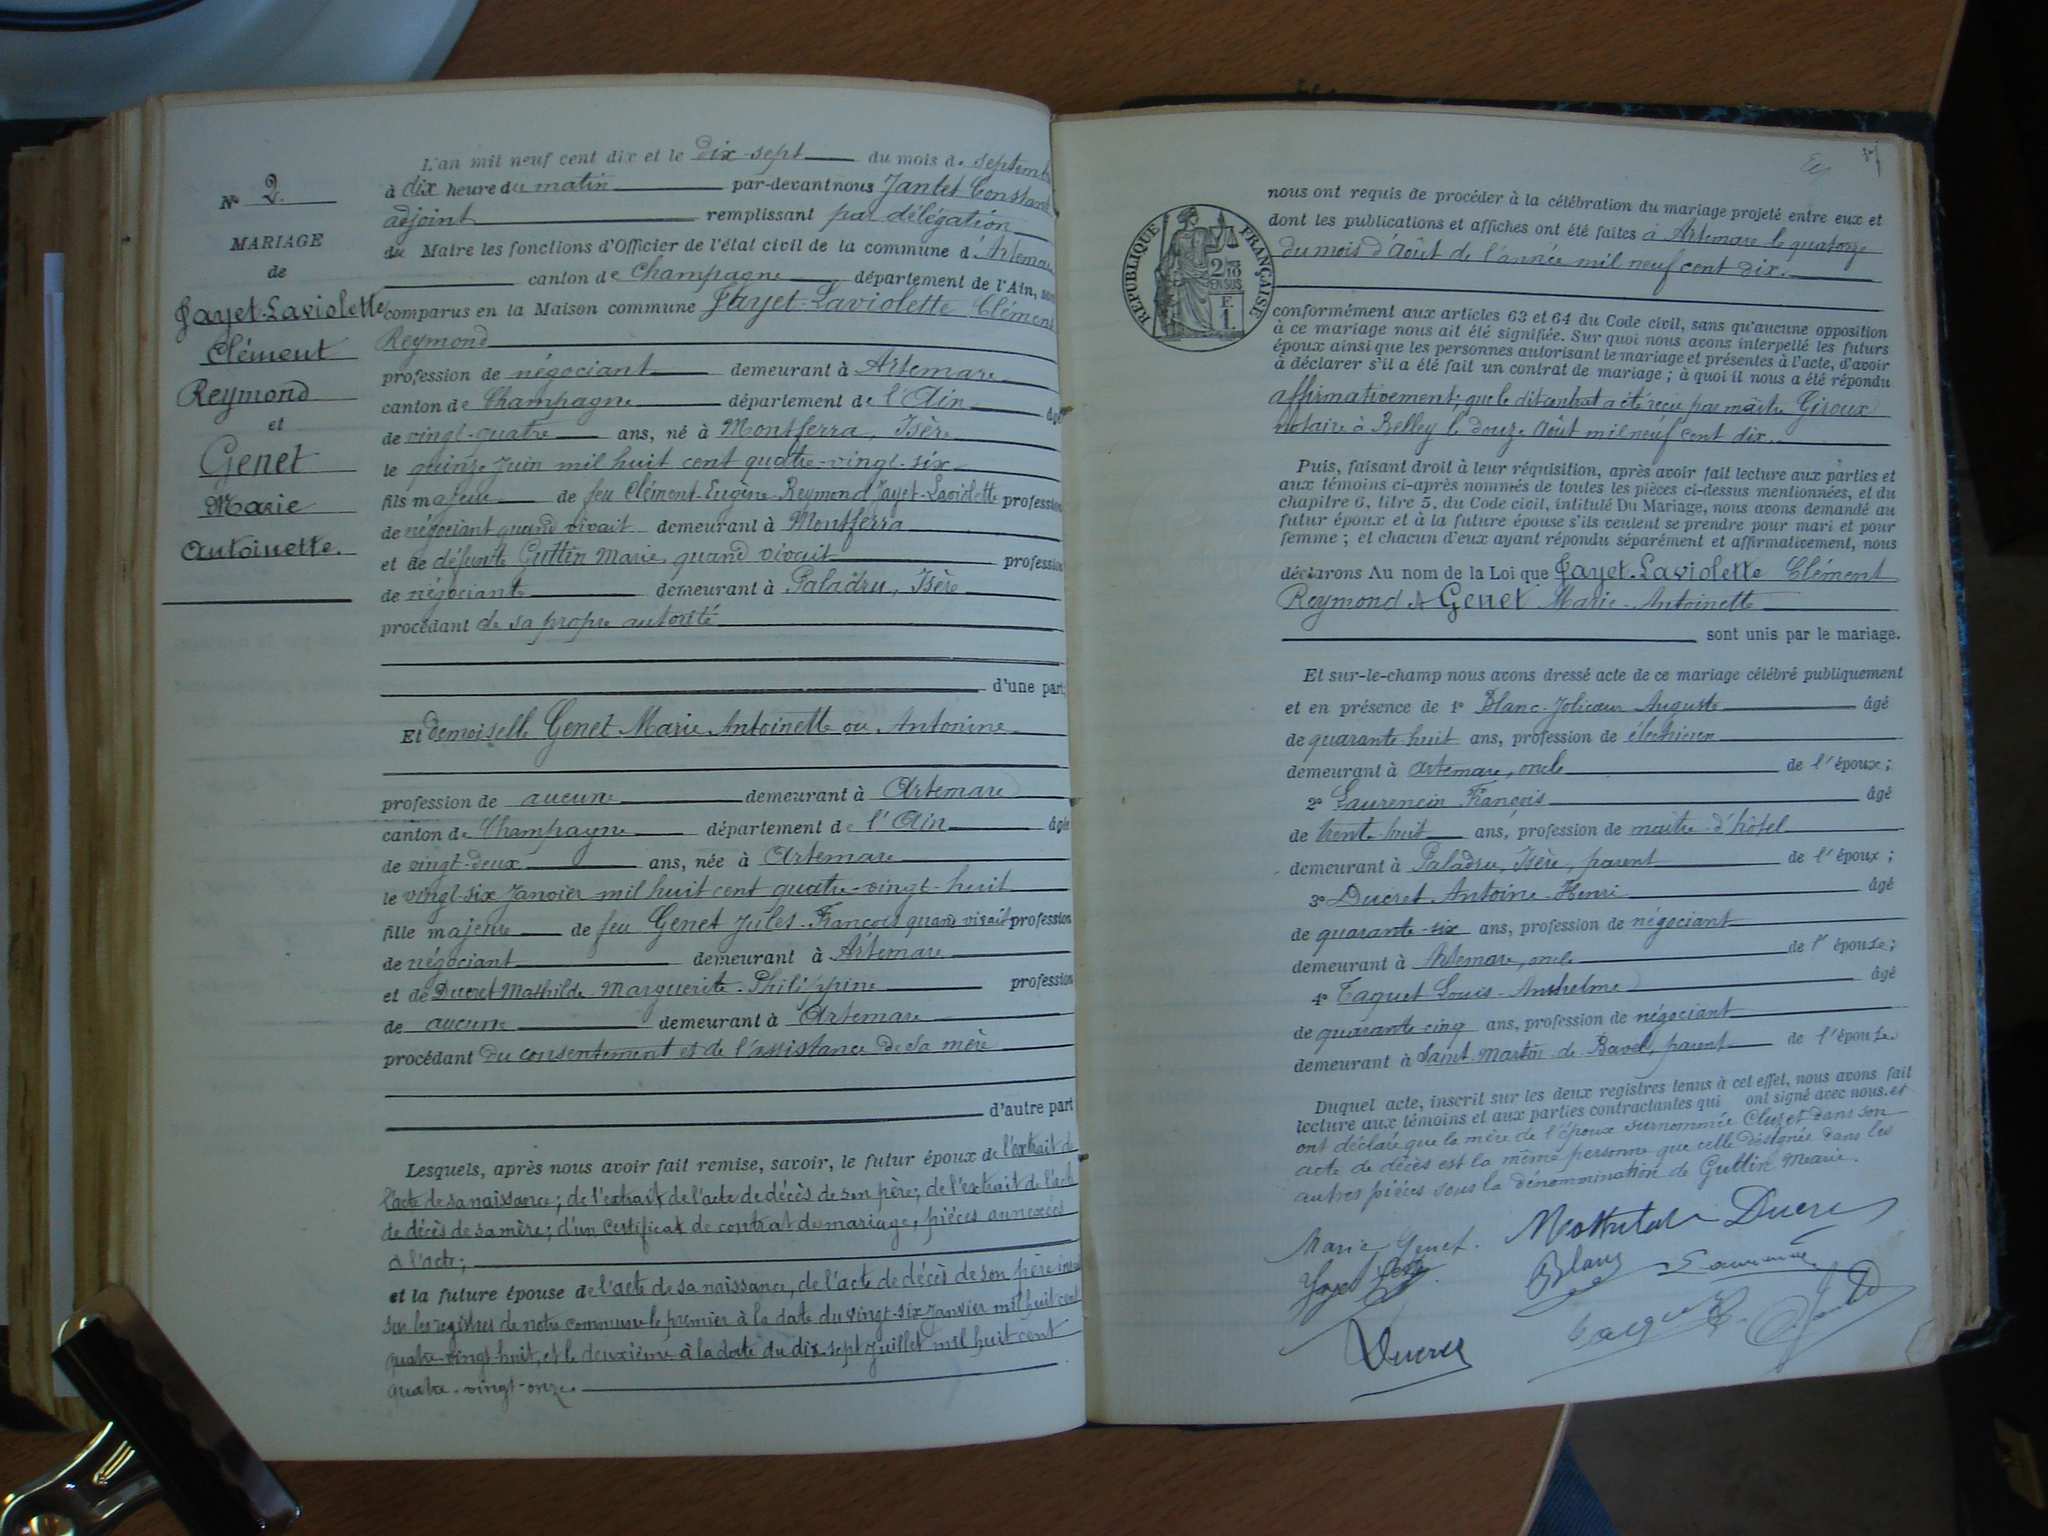 N° 2.
MARIAGE
de
Jayet-Laviolette
Clément
Reymond
et
Genet
Marie
Antoinette.
L'an mil neuf cent dix et le dix-sept du mois de septemb
à dix heure du matin par-devant nous Jantet Constant
adjoint remplissant par délégation
du Maire les fonctions d'Officier de l'état civil de la commune d'Artemare
canton de Champagne département de l'Ain, sont
comparus en la Maison commune Jayet-Laviolette Clément
Reymond
profession de négociant demeurant à Artemare
canton de Champagne département de l'Ain âgé
de vingt-quatre ans, né à Montferra, Isère
le quinze Juin mil huit cent quatre-vingt-six
fils majeur de feu Clément-Eugène-Reymond Jayet-Laviolette profession
de négociant quand vivait demeurant à Montferra
et de défunte Guttin Marie, quand vivait profession
de négociante demeurant à Paladru, Isère
procédant de sa propre autorité
d'une part;
Et demoiselle Genet Marie Antoinette ou Antonine
profession de aucune demeurant à Artemare
canton de Champagne département de l'Ain âgée
de vingt-deux ans, née à Artemare
le vingt-six Janvier mil huit cent quatre-vingt-huit
fille majeure de feu Genet Jules-François quand vivait profession
de négociant demeurant à Artemare
et de Ducret Mathilde-Marguerite-Philippine profession
de aucune demeurant à Artemare
procédant du consentement et de l'assistance de sa mère
d'autre part
Lesquels, après nous avoir fait remise, savoir, le futur époux de l'extrait de
l'acte de sa naissance; de l'extrait de l'acte de décès de son père; de l'extrait de l'acte
de décès de sa mère; d'un certificat de contrat de mariage, pièces annexées
à l'acte;
et la future épouse de l'acte de sa naissance, de l'acte de décès de son père
sur les registres de notre commune le premier à la date du vingt-six Janvier mil huit cent
quatre-vingt-huit, et le deuxième à la date du dix-sept Juillet mil huit cent
quatre-vingt-onze.
RÉPUBLIQUE FRANÇAISE
2/10
EN SUS
F.
1.
nous ont requis de procéder à la célébration du mariage projeté entre eux et
dont les publications et affiches ont été faites à Artemare le quatorze
du mois d'Août de l'année mil neuf cent dix.
conformément aux articles 63 et 64 du Code civil, sans qu'aucune opposition
à ce mariage nous ait été signifiée. Sur quoi nous avons interpellé les futurs
époux ainsi que les personnes autorisant le mariage et présentes à l'acte, d'avoir
à déclarer s'il a été fait un contrat de mariage; à quoi il nous a été répondu
affirmativement; que le dit contrat a été reçu par maître Giroux
notaire à Belley le douze Août mil neuf cent dix.
Puis, faisant droit à leur réquisition, après avoir fait lecture aux parties et
aux témoins ci-après nommés de toutes les pièces ci-dessus mentionnées, et du
chapitre 6, titre 5, du Code civil, intitulé Du Mariage, nous avons demandé au
futur époux et à la future épouse s'ils veulent se prendre pour mari et pour
femme; et chacun d'eux ayant répondu séparément et affirmativement, nous
déclarons Au nom de la Loi que Jayet-Laviolette Clément
Reymond et Genet Marie-Antoinette
sont unis par le mariage.
Et sur-le-champ nous avons dressé acte de ce mariage célébré publiquement
et en présence de 1° Blanc-Jolicœur Auguste âgé
de quarante-huit ans, profession de électricien
demeurant à Artemare, oncle de l'époux;
2° Laurencin François âgé
de trente-huit ans, profession de maître-d'hôtel
demeurant à Paladru, Isère, parent de l'époux;
3° Ducret Antoine-Henri âgé
de quarante-six ans, profession de négociant
demeurant à Artemare, oncle de l'épouse;
4° Taquet Louis-Anthelme âgé
de quarante cinq ans, profession de négociant
demeurant à Saint-Martin-de-Bavel, parent de l'épouse.
Duquel acte, inscrit sur les deux registres tenus à cet effet, nous avons fait
lecture aux témoins et aux parties contractantes qui ont signé avec nous, et
ont déclaré que la mère de l'époux surnommée Cluzet dans son
acte de décès est la même personne que celle désignée dans les
autres pièces sous la dénommination de Guttin Marie.
Marie Genet. Mathilde Ducret
Jayet Blanc Laurencin
Ducret Taquet Jantet